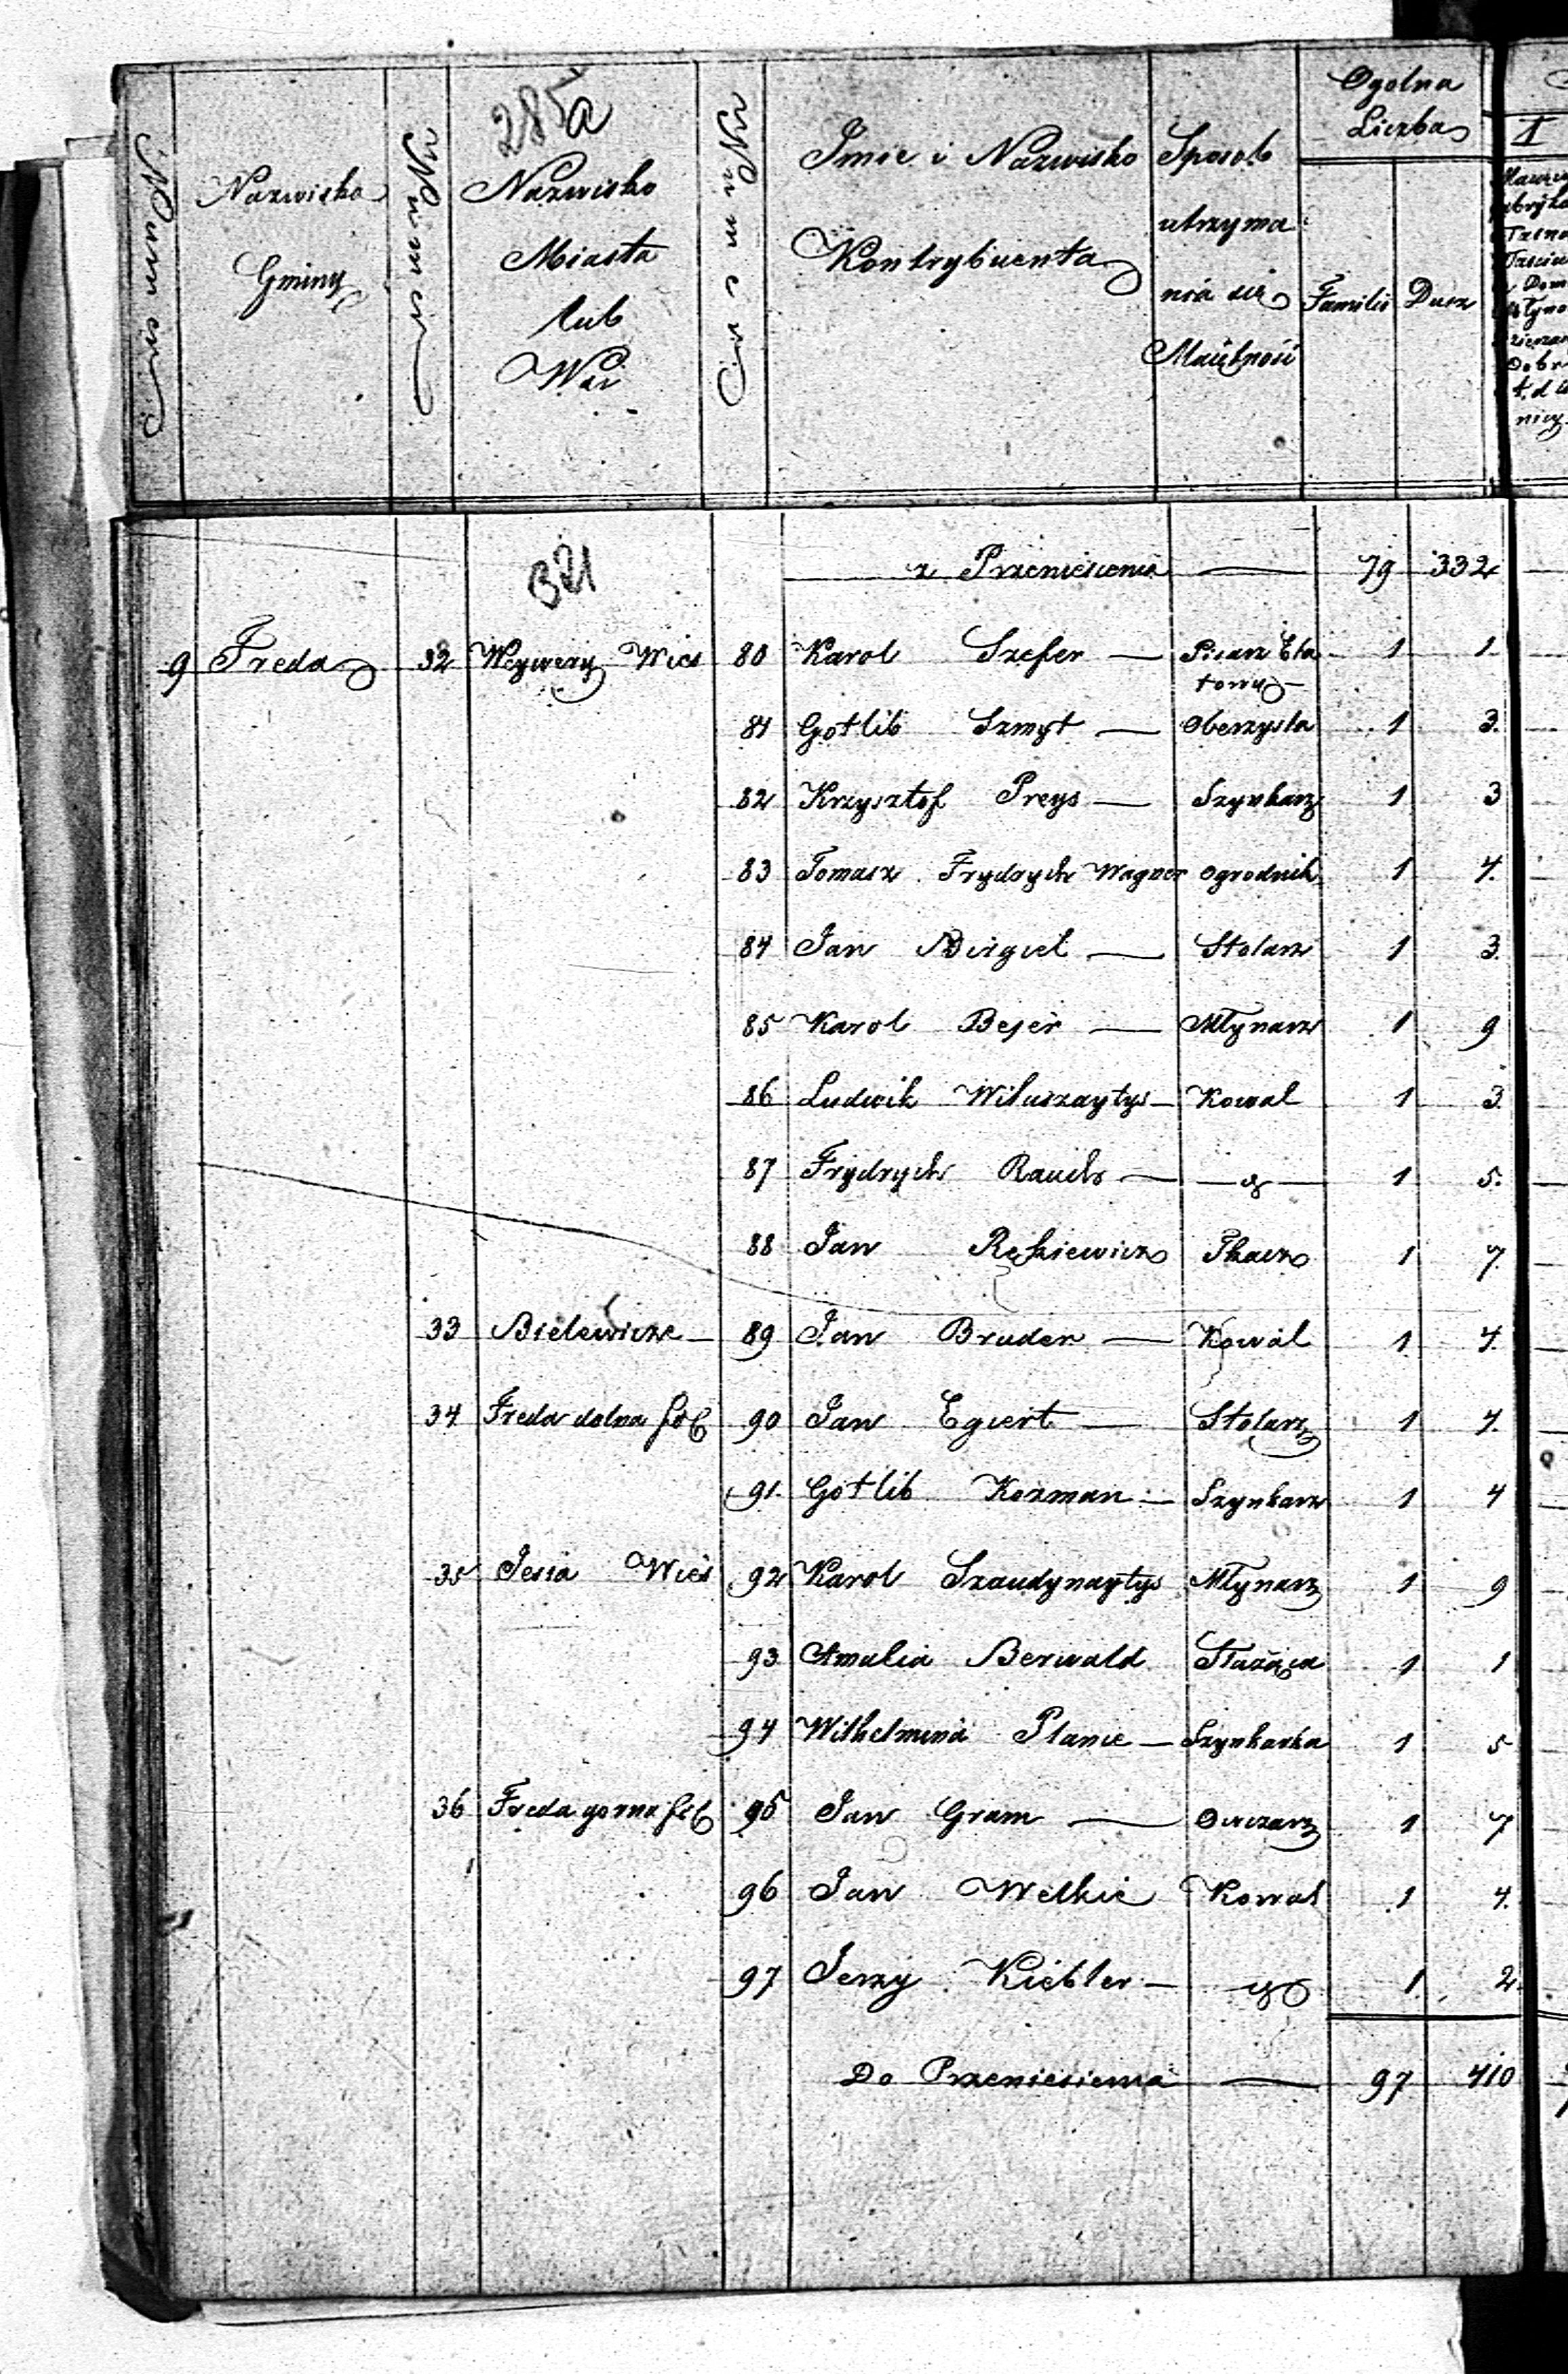 285a
Numer
Nazwisko Gminy
Numer
Nazwisko Miasta lub Wsi
Numer
Imie i Nazwisko Kontrybuenta
Sposob utrzymania się Maiętność
Ogólna Liczba
Familii Dusz
I
321
z Przeniesienia — 79 332
9 Freda 32 Weywery Wieś 80 Karol Szefer — Pisarz Etatowy — 1 1
81 Gotlib Szmyt — Oberzysta 1 3
82 Krzysztof Preys — Szynkarz 1 3
83 Tomasz Frydrych Wagner Ogrodnik 1 4
84 Jan — Stolarz 1 3
85 Karol Bejer — Młynarz 1 9
86 Ludwik Wiluszaytys — Kowal 1 3
87 Frydrych Rauch — 1 5
88 Jan Tkacz 1 7
33 Bielewicze — 89 Jan Bruder — Kowal 1 4
34 Freda dolna fol 90 Jan Egiert — Stolarz 1 4
91 Gotlib Kozman — Szynkarz 1 4
35 Jesia Wieś 92 Karol Szaudynaytys Młynarz 1 9
93 Amalia Berwald 1 1
94 Wilhelmina Planie — Szynkarka 1 5
36 Freda gorna fol 95 Jan Gram — Owczarz 1 7
96 Jan Welkie Kowal 1 4
97 Jerzy Kiebler — 1 2
Do Przeniesienia — 97 410